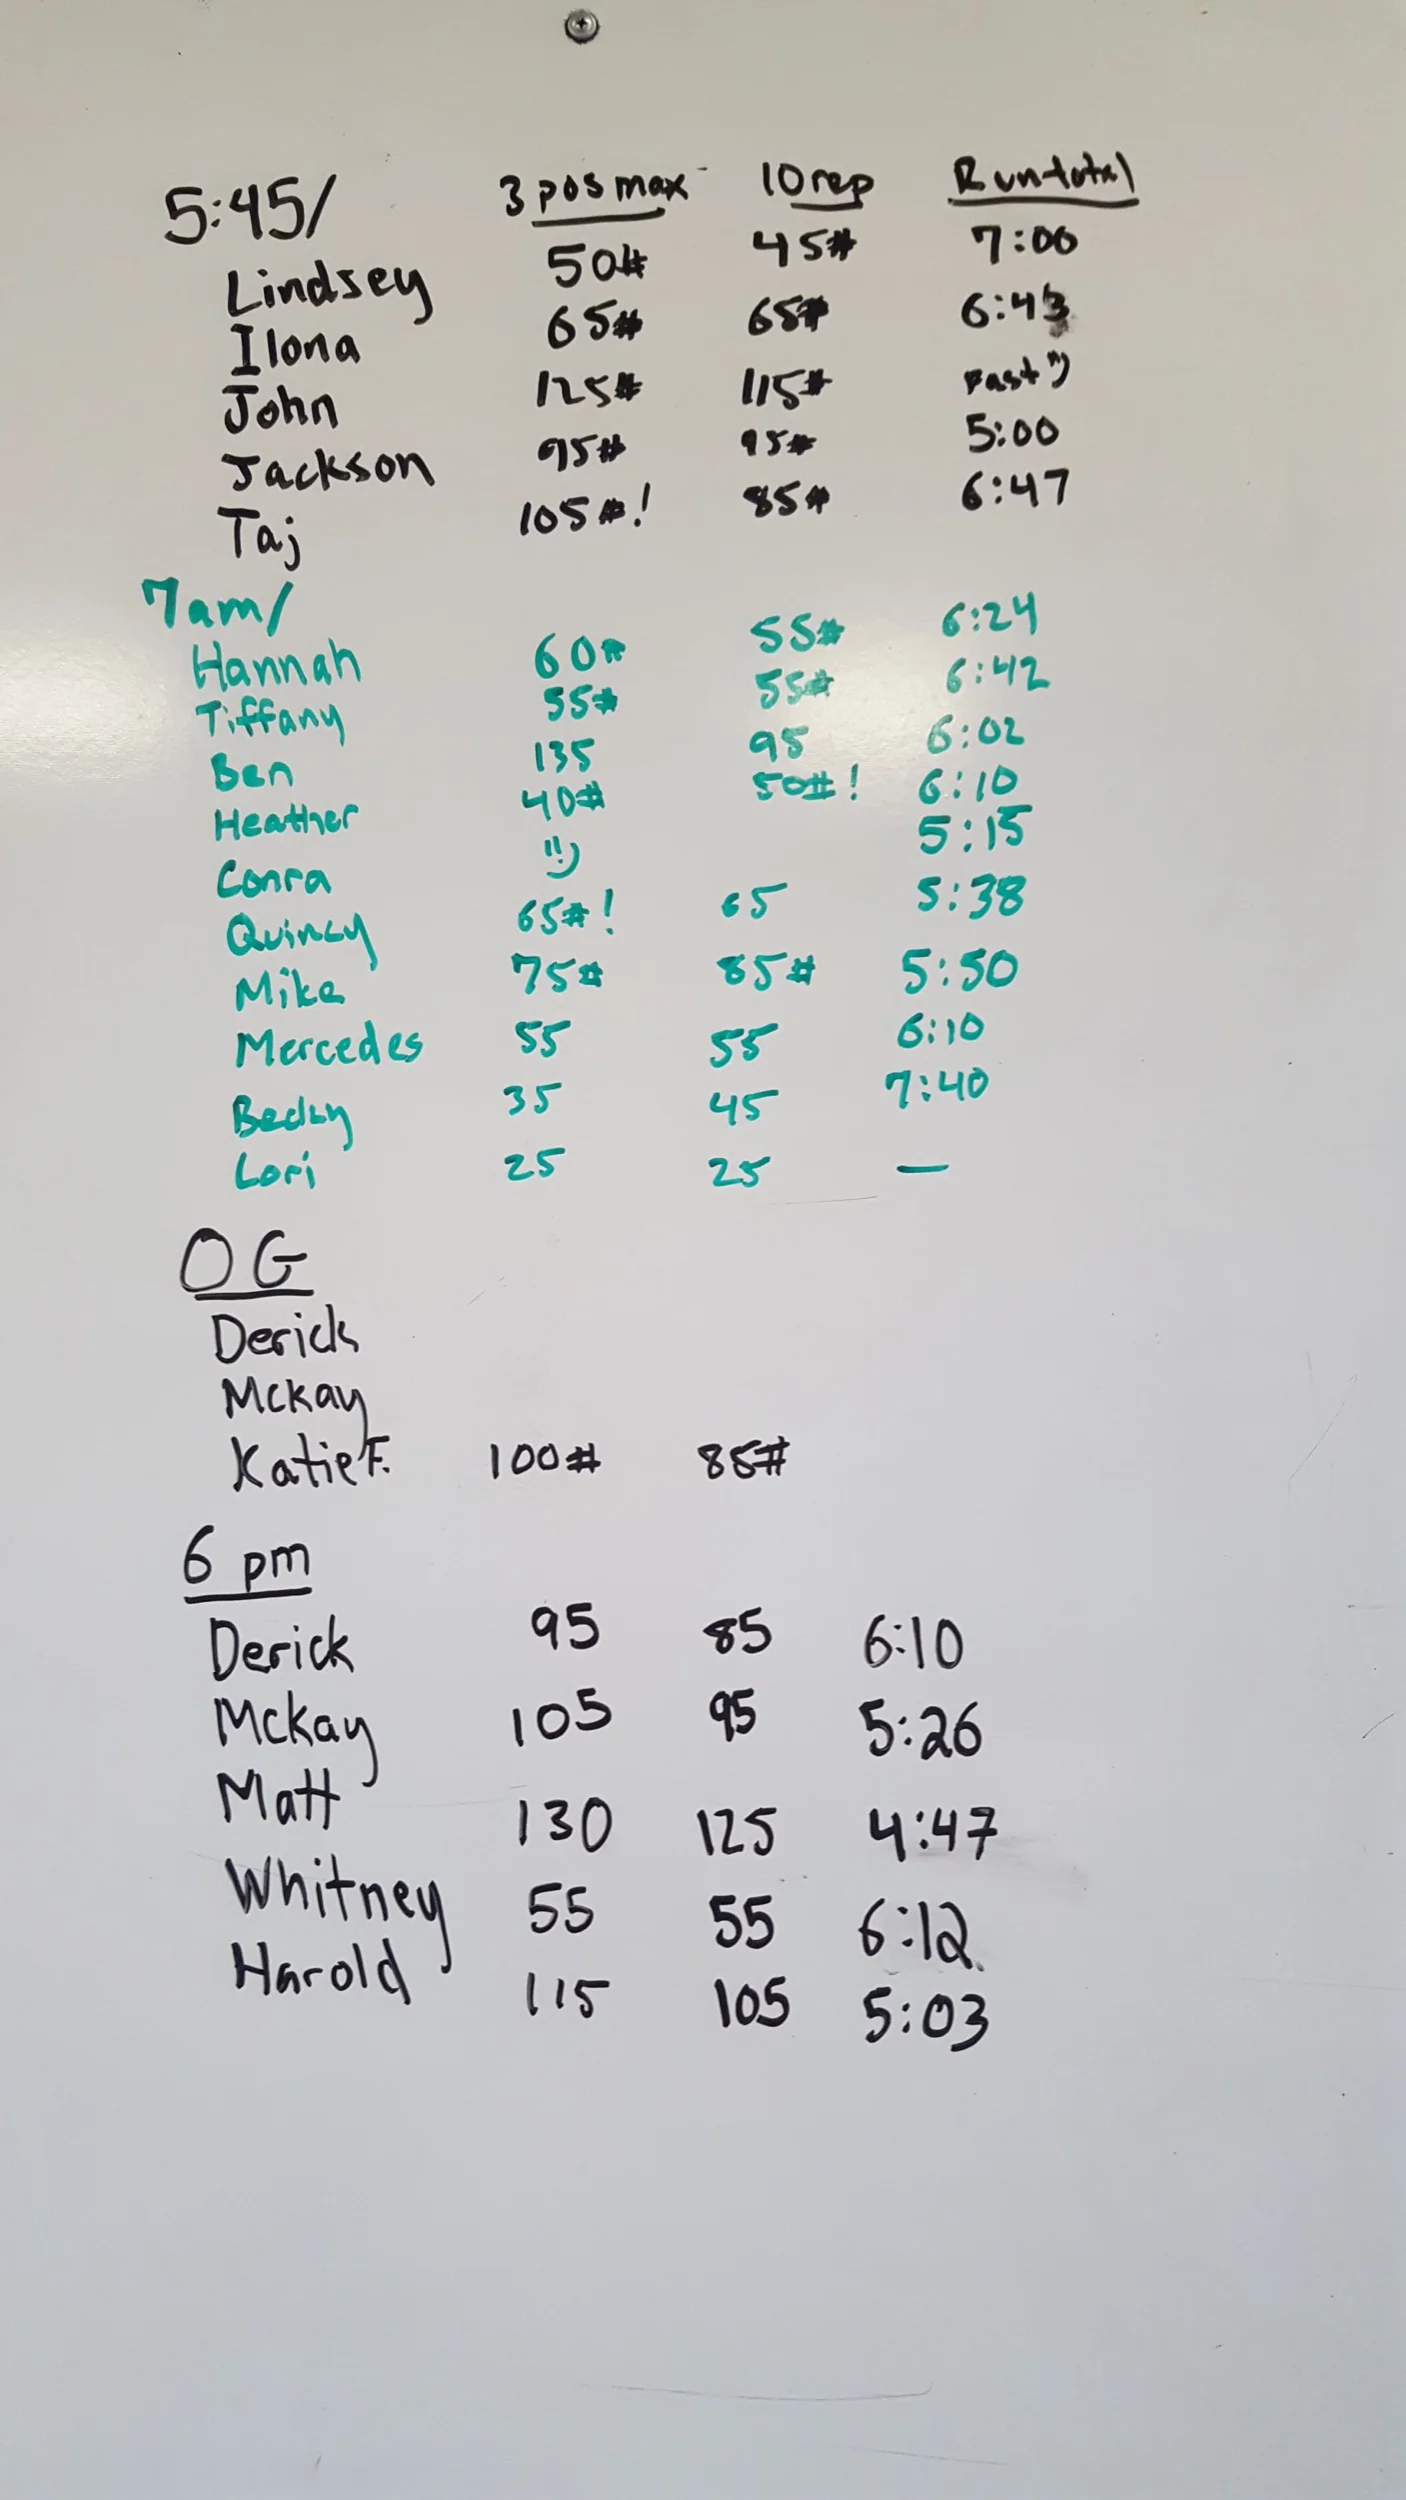 5:45/ 3 pos max 10 rep Run total
Lindsey 50# 45# 7:00
Ilona 65# 65# 6:43
John 125# 115# Fast :)
Jackson 95# 95# 5:00
Taj 105#! 85# 6:47
7am/
Hannah 60# 55# 6:24
Tiffany 55# 55# 6:42
Ben 135 95 6:02
Heather 40# 50#! 6:10
Conra :) 5:15
Quincy 65#! 65 5:38
Mike 75# 85# 5:50
Mercedes 55 55 6:10
Becky 35 45 7:40
Lori 25 25 —
OG
Derick
Mckay
Katie F. 100# 85#
6 pm
Derick 95 85 6:10
Mckay 105 95 5:26
Matt 130 125 4:47
Whitney 55 55 6:12
Harold 115 105 5:03